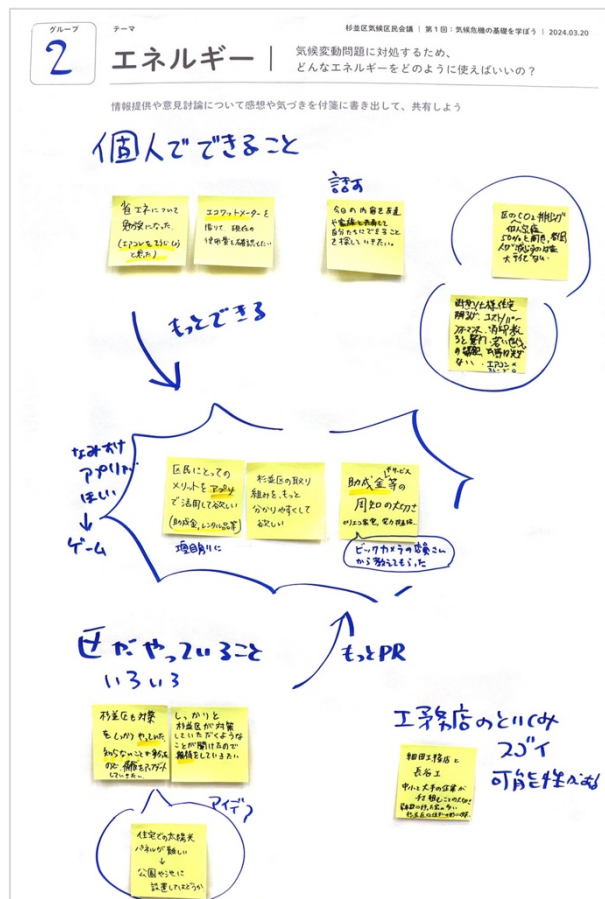 グループ
2
テーマ
エネルギー
杉並区気候区民会議 | 第1回:気候危機の基礎を学ぼう | 2024.03.20
気候変動問題に対処するため、
どんなエネルギーをどのように使えばいいの?
情報提供や意見討論について感想や気づきを付箋に書き出して、共有しよう
個人でできること
省エネについて
勉強になった。
と思った)
エコワットメーターを
借りて、現在の
使用量を確認したい
話す
今日の内容を友達
や家族と共有して
自分たちにできること
を探していきたい。
区のCO2排出が
個人家庭
50%と聞き、
大
断熱仕様住宅
コストパー
フォーマンス
エアコン
もっとできる
なみすけ
アプリが
ほしい
↓
ゲーム
区民にとっての
メリットをアプリ
で活用して欲しい
(助成金、レンタル品等)
項目別に
杉並区の取り
組みを、もっと
分かりやすくして
欲しい
やサービス
助成金等の
周知の大切さ
ビックカメラの店員さん
から教えてもらった
区がやっていること
いろいろ
もっとPR
杉並区も対策
をしっかりやっていた。
知らないことが多かった
ので、情報をアップデート
していきたい。
しっかりと
杉並区が対策
していただくような
ことが聞けたので
していきたい
アイデア
住宅での太陽光
パネルが難しい
↓
公園や池に
設置してはどうか
工務店のとりくみ
スゴイ
可能性がある
細田工務店と
長谷工
中小と大手の企業が
手を組むことの大切さ